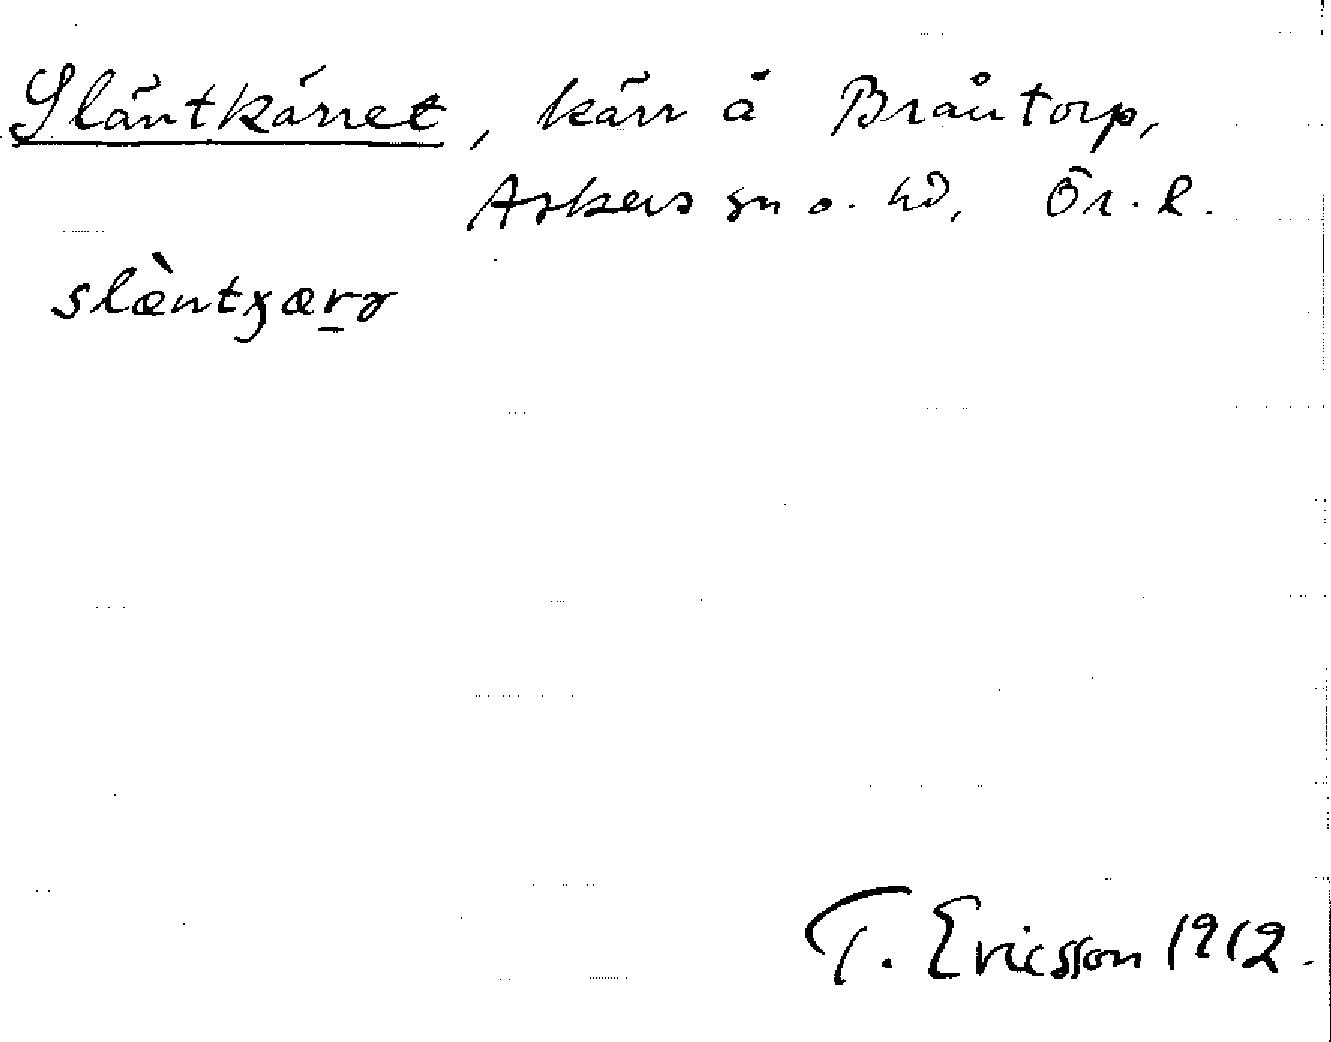 Släntkärret, kärr å Bråntorp,
Askers sn o. hd, Ör. l.
slæ̀ntɣær̠ə
T. Ericsson 1912.